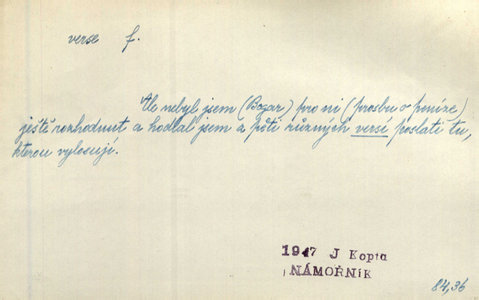 verse f.
Ale nebyl jsem (Bogar) pro ni (prosbu o peníze)
ještě rozhodnut a hodlal jsem z pěti různých versí poslati tu,
kterou vylosují.
1947 J Kopta
NÁMOŘNÍK
84,36